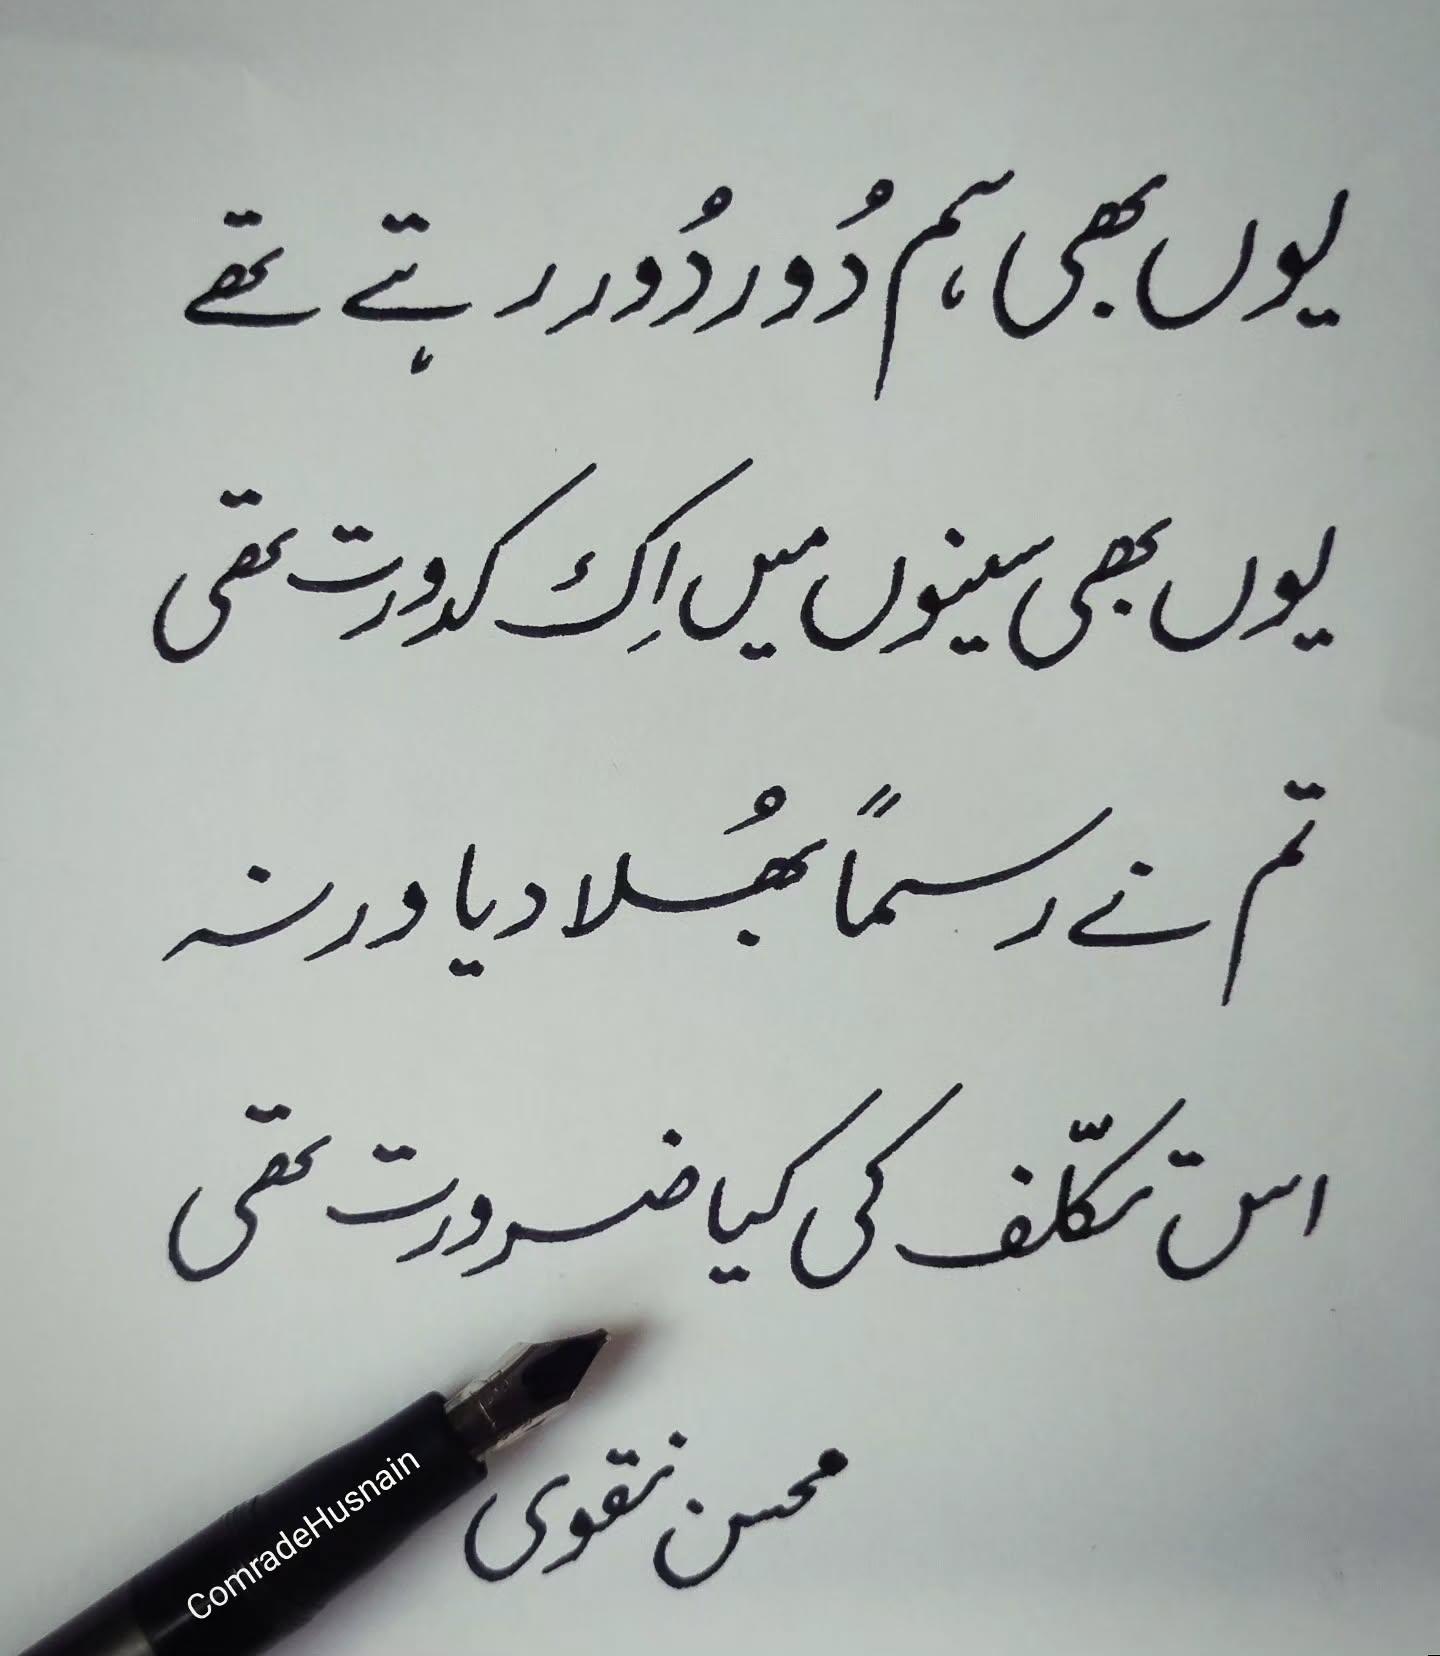 یوں بھی ہم دُور دُور رہتے تھے
یوں بھی سینوں میں اِک کدورت تھی
تم نے رسماً بھُلا دیا ورنہ
اس تکلّف کی کیا ضرورت تھی
محسن نقوی
ComradeHusnain